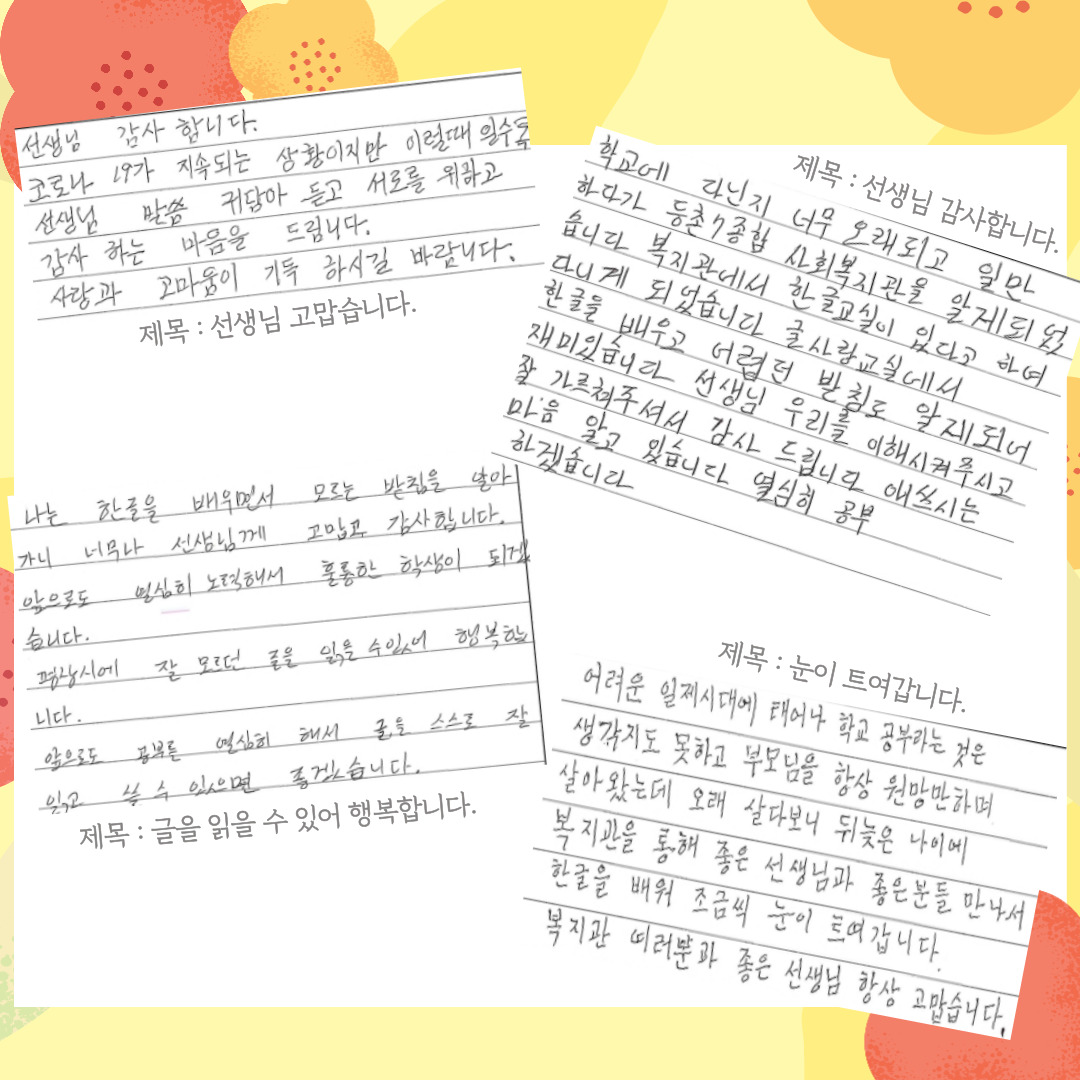 선생님 감사 합니다.
코로나 19가 지속되는 상황이지만 이럴때 일수록
선생님 말씀 귀담아 듣고 서로를 위하고
감사 하는 마음을 드립니다.
사랑과 고마움이 가득 하시길 바랍니다.
제목 : 선생님 고맙습니다.
제목 : 선생님 감사합니다.
학교에 다닌지 너무 오래되고 일만
하다가 등촌7종합 사회복지관을 알게되었
습니다 복지관에서 한글교실이 있다고 하여
다니게 되었습니다 글사랑교실에서
한글을 배우고 어렵던 받침도 알게되어
재미있습니다 선생님 우리를 이해시켜주시고
잘 가르쳐주셔서 감사 드립니다 애쓰시는
마음 알고 있습니다 열심히 공부
하겠습니다
나는 한글을 배우면서 모르는 받침을 알아
가니 너무나 선생님께 고맙고 감사합니다.
앞으로도 열심히 노력해서 훌륭한 학생이 되겠
습니다.
평상시에 잘 모르던 글을 읽을 수있어 행복합
니다.
앞으로도 공부를 열심히 해서 글을 스스로 잘
읽고 쓸 수 있으면 좋겠습니다.
제목 : 글을 읽을 수 있어 행복합니다.
제목 : 눈이 트여갑니다.
어려운 일제시대에 태어나 학교 공부라는 것은
생각지도 못하고 부모님을 항상 원망만하며
살아왔는데 오래 살다보니 뒤늦은 나이에
복지관을 통해 좋은 선생님과 좋은분들 만나서
한글을 배워 조금씩 눈이 트여갑니다.
복지관 여러분과 좋은 선생님 항상 고맙습니다.